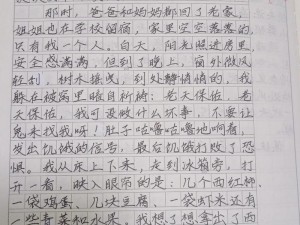 那时,爸爸和妈妈都回了老家,
姐姐也在学校留宿,家里空空落落的,
只有我一个人。白天,阳光照进房里,
安全感满满,但到了晚上,窗外微风
轻刮,树木摇曳,到处静悄悄的,我
躲在被窝里暗自祈祷:老天保佑,老
天保佑,我可没做什么坏事,不要让
鬼来找我呀!肚子咕噜咕噜地响着,
发出饥饿的信号,最后饥饿打败了恐
惧。我从床上下来,走到冰箱旁,打
开一看,映入眼帘的是:几个西红柿、
一袋鸡蛋、几块豆腐、一袋虾米还有
一些青菜和水果。我想了想拿出了西